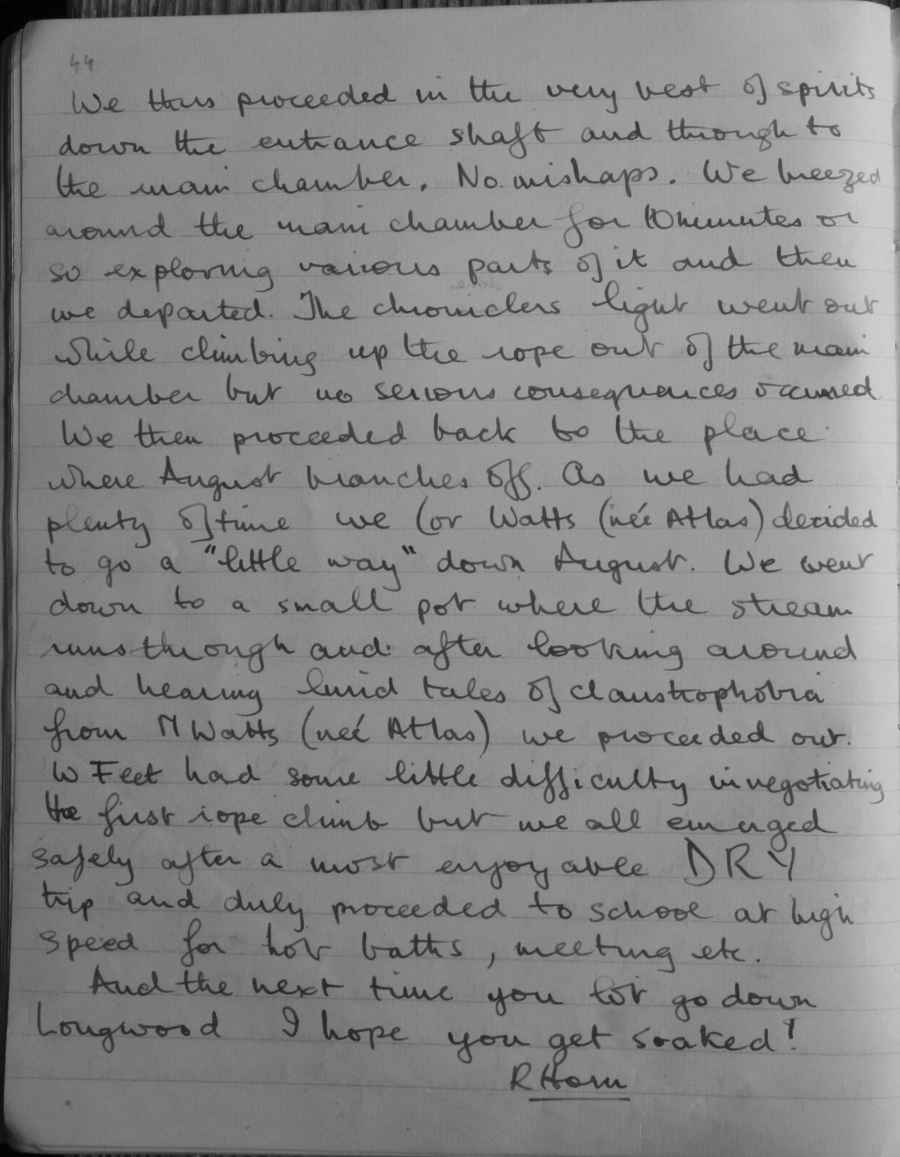 44
We thus proceeded in the very best of spirits
down the entrance shaft and through to
the main chamber. No mishaps. We breezed
around the main chamber for 10 minutes or
so exploring various parts of it and then
we departed. The chroniclers light went out
while climbing up the rope out of the main
chamber but no serious consequences occurred
We then proceeded back to the place
where August branches off. As we had
plenty of time we (or Watts (neé Atlas) decided
to go a "little way" down August. We went
down to a small pot where the stream
runs through and after looking around
and hearing lurid tales of claustrophobia
from M Watts (neé Atlas) we proceeded out.
W Feet had some little difficulty in negotiating
the first rope climb but we all emerged
safely after a most enjoyable DRY
trip and duly proceeded to school at high
speed for hot baths, meeting etc.
And the next time you lot go down
Longwood I hope you get soaked!
R Horn